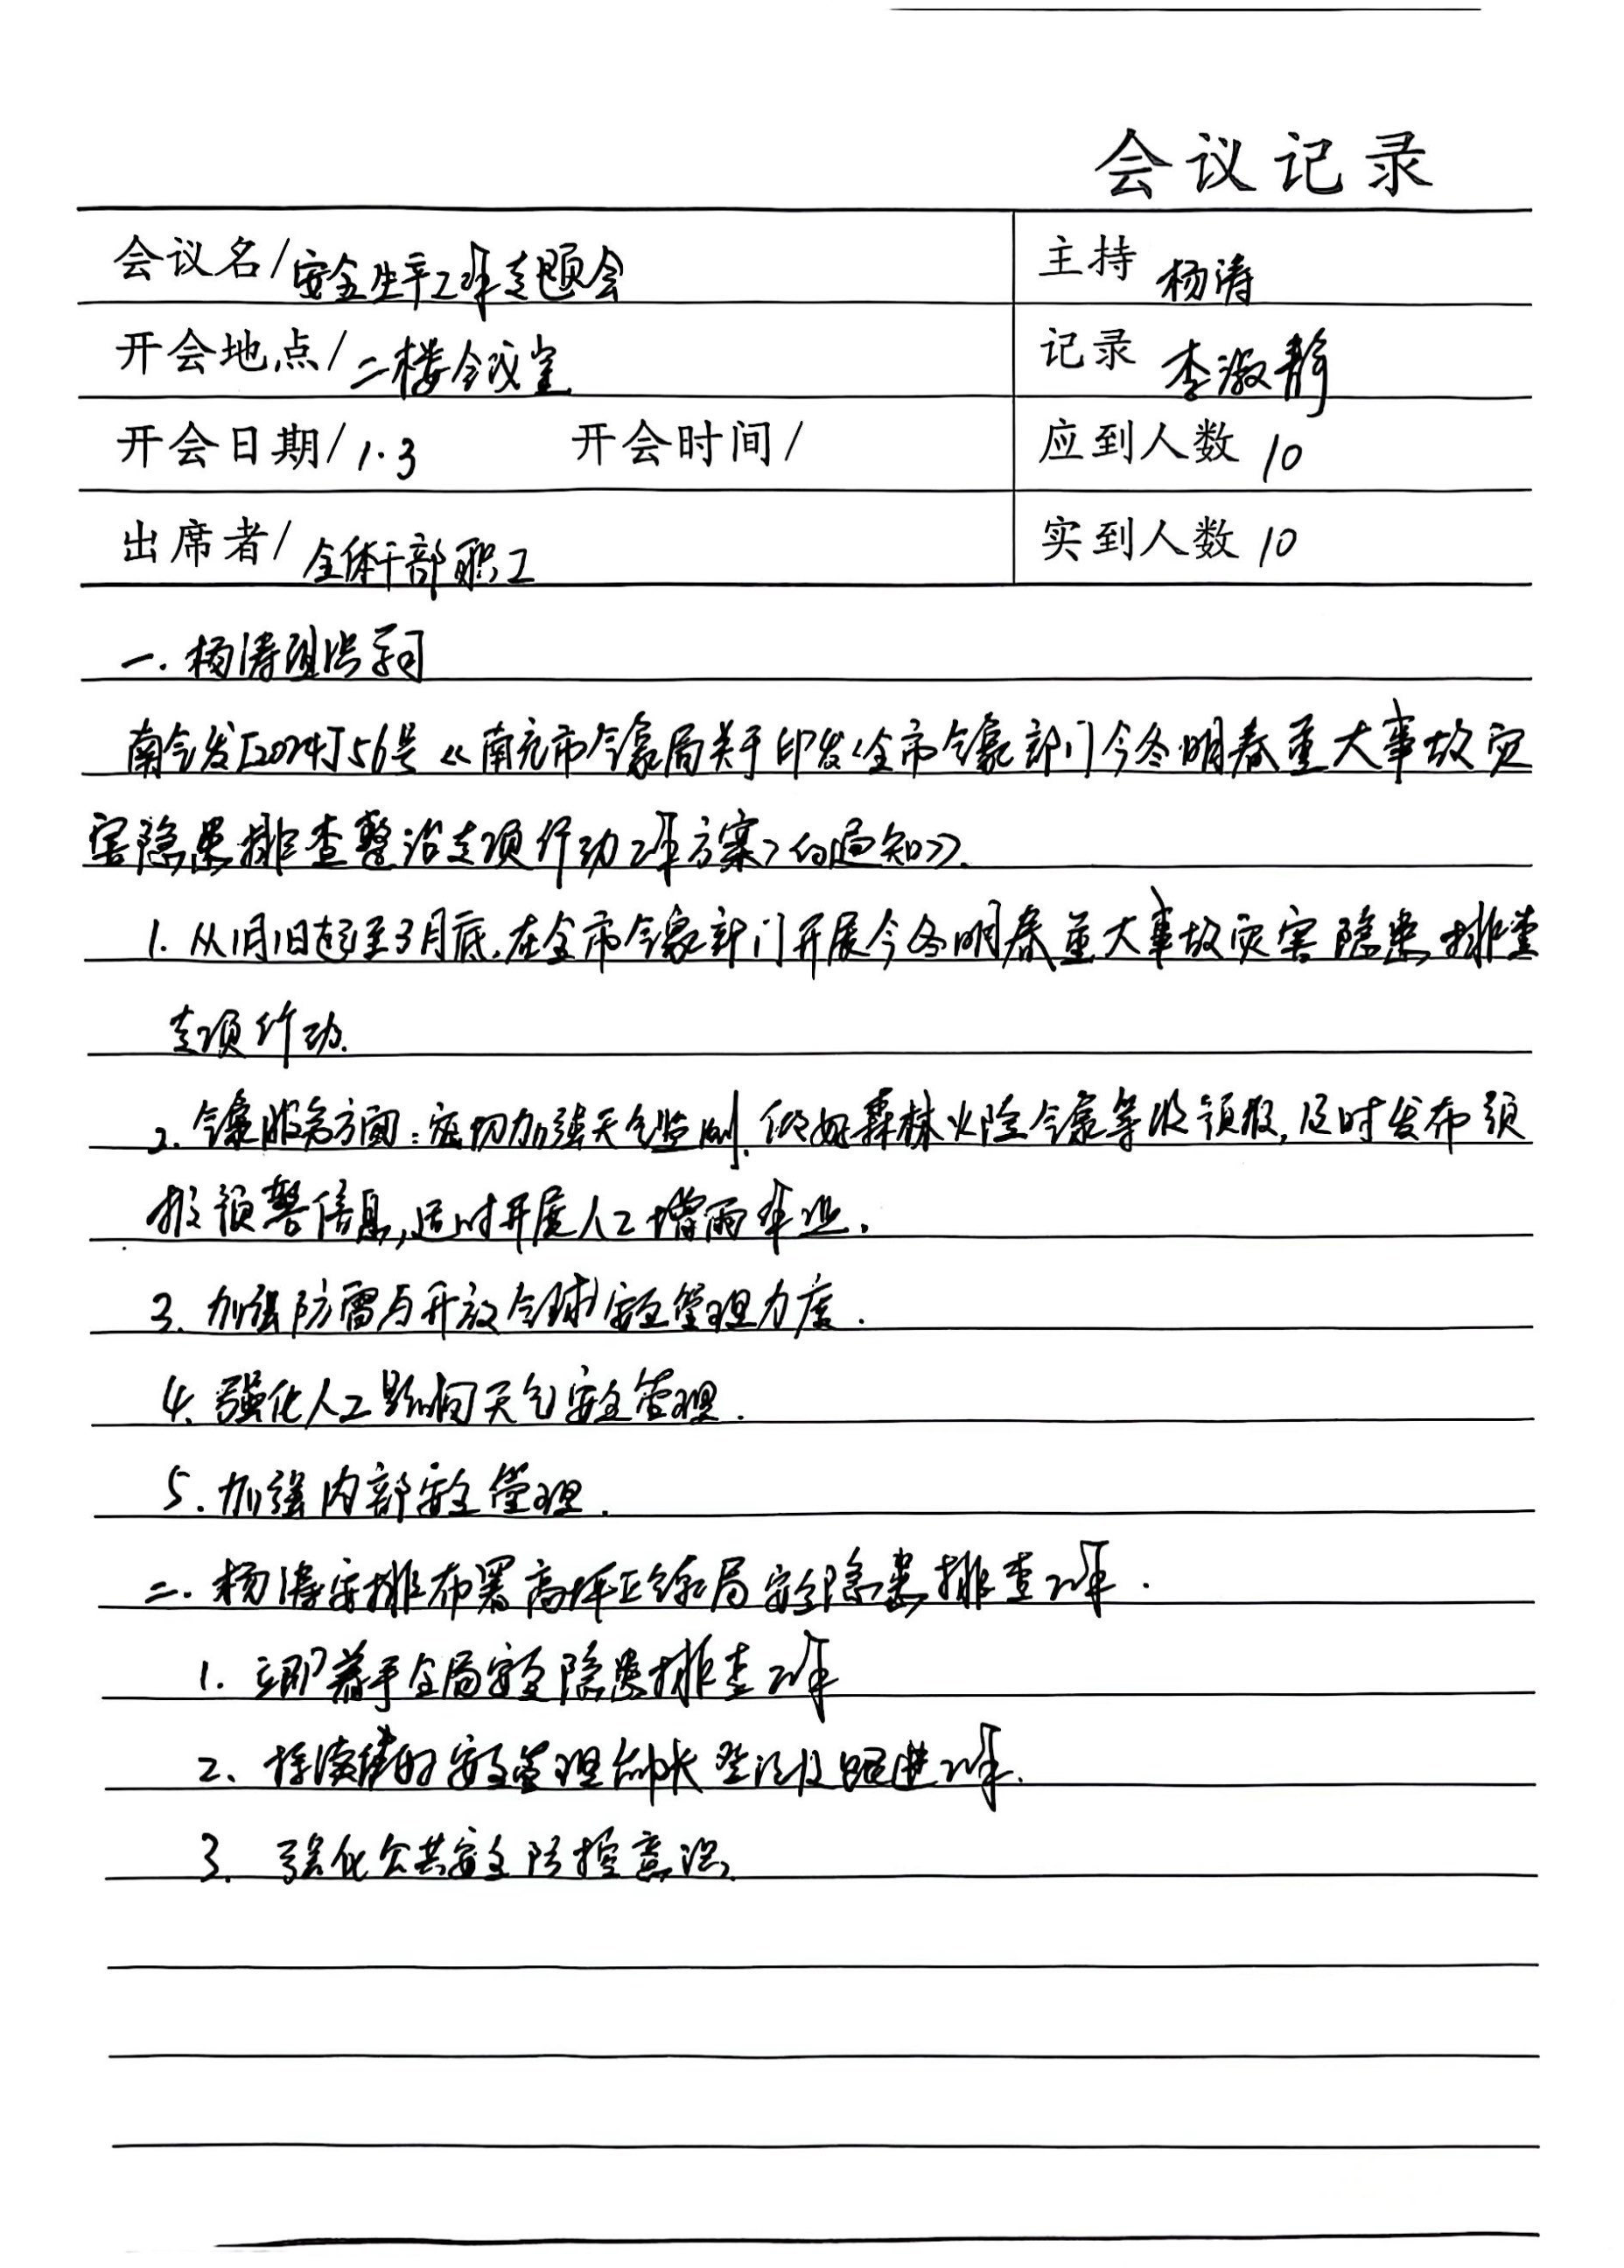 会议记录
会议名/安全生产工作专题会 主持 杨涛
开会地点/二楼会议室 记录 李 静
开会日期/1.3 开会时间/ 应到人数 10
出席者/全体干部职工 实到人数 10
一.杨涛组织学习
南气发[2024]56号《南充市气象局关于印发〈全市气象部门今冬明春重大事故灾
害隐患排查整治专项行动工作方案〉的通知》.
1.从1月1日起至3月底,在全市气象部门开展今冬明春重大事故灾害隐患排查
专项行动.
2.气象服务方面:密切加强天气监测,做好森林火险气象等级预报,及时发布预
报预警信息,适时开展人工增雨作业.
3.加强防雷与升放气球安全管理力度.
4.强化人工影响天气安全管理.
5.加强内部安全管理.
二.杨涛安排布署高坪区气象局安全隐患排查工作.
1.立即着手全局安全隐患排查工作
2、持续做好安全管理台帐登记及跟进工作.
3.强化公共安全防控意识.